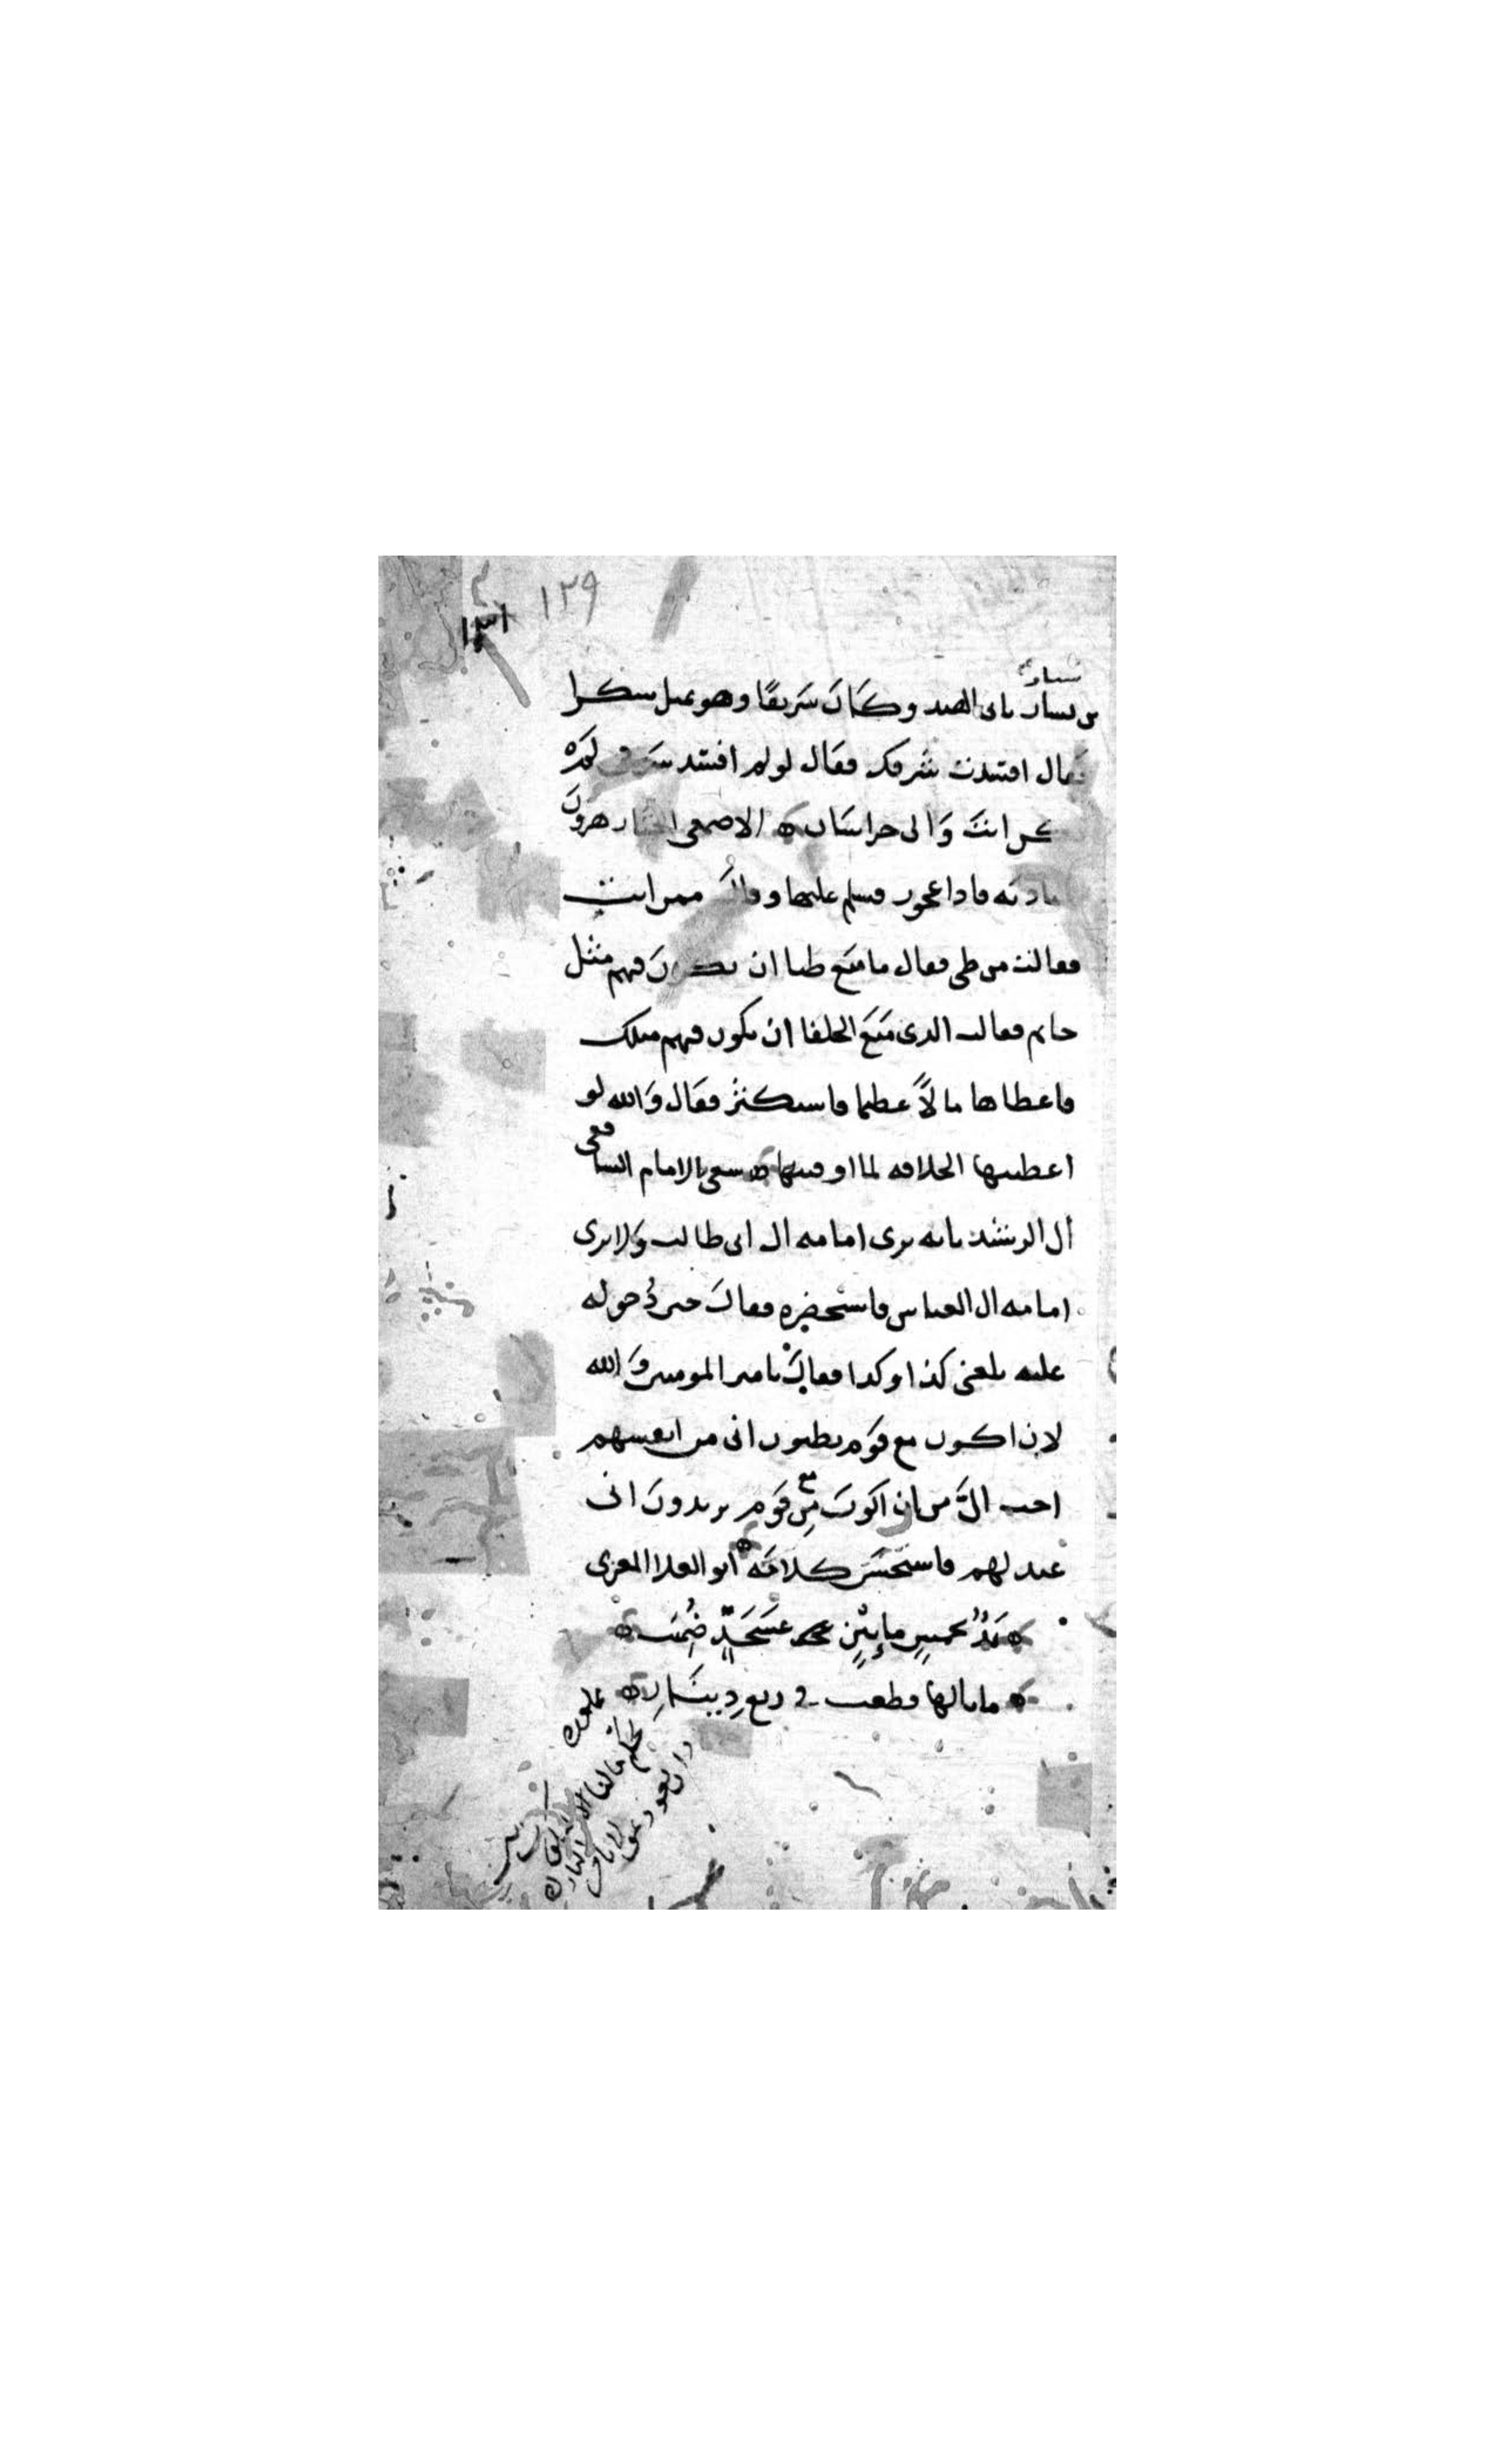 ١٢٩
١٣١
سيار
بن يسار بابى الهند وكان شريفا وهو يميل سكرا
فقال افسدت شرفك فقال لو لم افسد شرفى لم
تكن انت والى خراسان الاصمعى اجتاز هرون
ببادية فاذا عجوز فسلم عليها وقال ممن انت
فقالت من طى فقال ما منع طيا ان يكون فيهم مثل
حاتم فقالت الذى منع الخلفا ان يكون فيهم مثلك
فاعطاها مالاً عظيما فاستكثر فقال والله لو
اعطيتها الخلافة لما اوفيتها سعى بالامام الشافعى
الى الرشيد بانه يرى امامة ال ابى طالب ولا يرى
امامة ال العباس فاستحضره فقال حين دخوله
عليه بلغنى كذا وكذا فقال يامير المومنين والله
لان اكون مع قوم يظنون انى من انفسهم
احب الىّ من ان اكون مع قوم يريدون انى
عبد لهم فاستحسن كلامه ابو العلا المعرى
يدٌ بخمسِ مايتين عسجدٍ ضُمنت
ما بالها قطعت فى ربع دينارِ